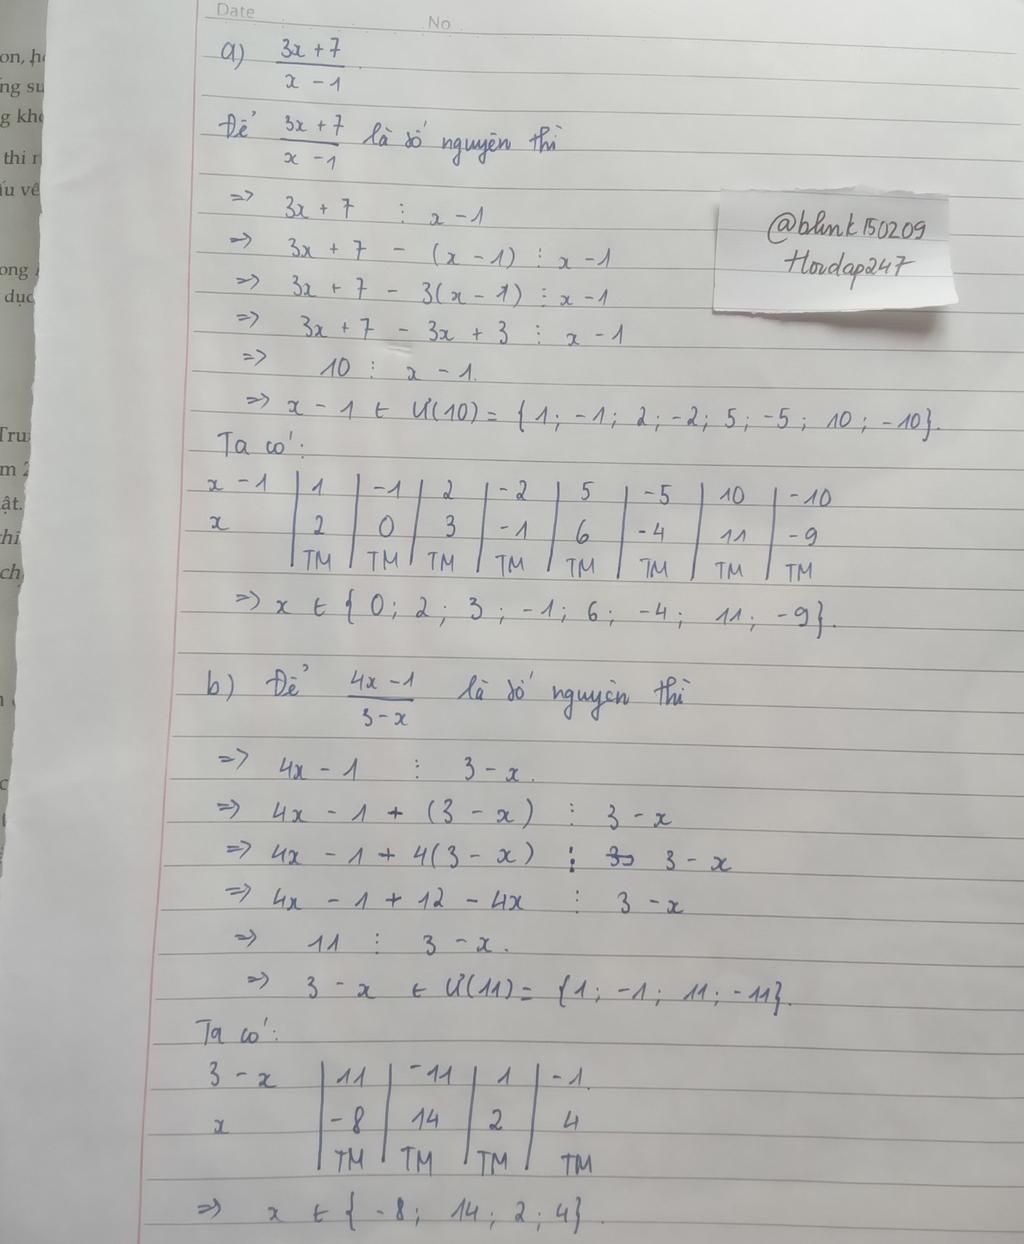 Date
No
a) (3x + 7)/(x - 1)
Để (3x + 7)/(x - 1) là số nguyên thì
=> 3x + 7 ⋮ x - 1
=> 3x + 7 - (x - 1) ⋮ x - 1
=> 3x + 7 - 3(x - 1) ⋮ x - 1
=> 3x + 7 - 3x + 3 ⋮ x - 1
=> 10 ⋮ x - 1.
=> x - 1 ∈ Ư(10) = {1; -1; 2; -2; 5; -5; 10; -10}.
Ta có:
x - 1 | 1 | -1 | 2 | -2 | 5 | -5 | 10 | -10
x | 2 | 0 | 3 | -1 | 6 | -4 | 11 | -9
TM | TM | TM | TM | TM | TM | TM | TM
=> x ∈ {0; 2; 3; -1; 6; -4; 11; -9}.
@blink150209
Hoidap247
b) Để (4x - 1)/(3 - x) là số nguyên thì
=> 4x - 1 ⋮ 3 - x.
=> 4x - 1 + (3 - x) ⋮ 3 - x
=> 4x - 1 + 4(3 - x) ⋮ 3 - x
=> 4x - 1 + 12 - 4x ⋮ 3 - x
=> 11 ⋮ 3 - x.
=> 3 - x ∈ Ư(11) = {1; -1; 11; -11}.
Ta có:
3 - x | 11 | -11 | 1 | -1.
x | -8 | 14 | 2 | 4
TM | TM | TM | TM
=> x ∈ {-8; 14; 2; 4}.